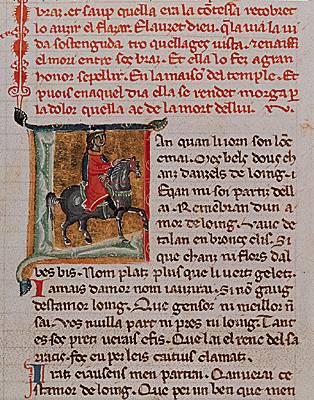 brar. et saup quella era la cõtessa recobret
lo auzir el flazar. El auzet dieu. qͣ la uida la ui
da sostenguda tro quel lages uista. renaissi
el mori entre sos braz. Et ella lo fez a gran
honor sepellir. En la maison del temple. Et
puois en aquel dia ella se rendet morga p
la dolor quella ac de la mort de llui.
an quan li iorn son lõc
e mai. Mes bels douz ch
anz dauzels de loing. E
Eqan mi soi partiz de ll
ai. Remẽbran dun a
mor de loing. Vauc de
talan en broncs e clis. Si
que chanz ni flors dal
bes bis. Nom platz plus que l iuerz gelatz.
Iamais damor nom iauzirai. Si nõ gauz
destamor loing. Que gensor ni meillor nõ
sai. Vas nuilla part ni pres ni loing. Tant
es sos pretz uerais e fis. Que lai el renc del sa
razis. fos eu per leis caitius clamatz.
Iratz e iausens men partrai. Can uerai ce
st amor de loing. Que per un ben que men